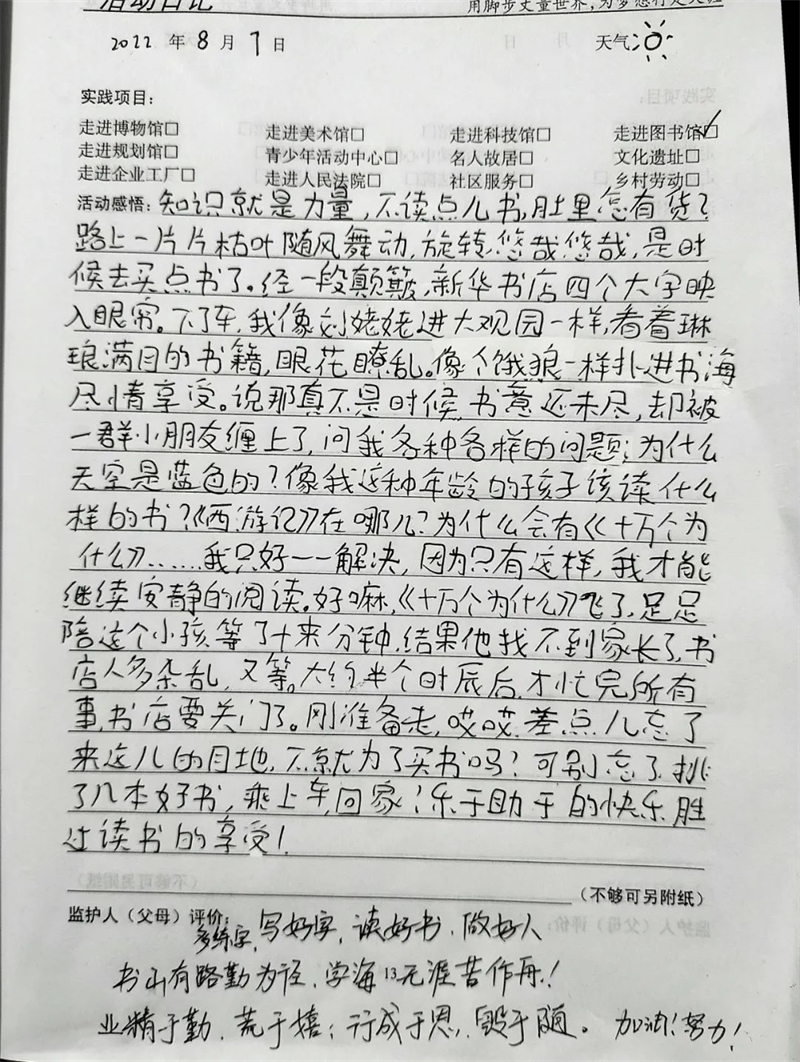 活动日记 用脚步丈量世界,为梦想行走天涯
2022 年 8 月 1 日 天气
实践项目:
走进博物馆□ 走进美术馆□ 走进科技馆□ 走进图书馆□✓
走进规划馆□ 青少年活动中心□ 名人故居□ 文化遗址□
走进企业工厂□ 走进人民法院□ 社区服务□ 乡村劳动□
活动感悟:知识就是力量,不读点儿书,肚里怎有货?
路上一片片枯叶随风舞动,旋转,悠哉悠哉,是时
候去买点书了。经一段颠簸,新华书店四个大字映
入眼帘。下了车,我像刘姥姥进大观园一样,看着琳
琅满目的书籍,眼花瞭乱。像个饿狼一样扑进书海
尽情享受。说那真不是时候,书意还未尽,却被
一群小朋友缠上了,问我各种各样的问题:为什么
天空是蓝色的?像我这种年龄的孩子该读什么
样的书?《西游记》在哪儿?为什么会有《十万个为
什么》……我只好一一解决,因为只有这样,我才能
继续安静的阅读。好嘛,《十万个为什么》飞了,足足
陪这个小孩等了十来分钟,结果他找不到家长了,书
店人多杂乱,又等。大约半个时辰后,才忙完所有
事,书店要关门了。刚准备走,哎哎,差点儿忘了
来这儿的目地,不就为了买书吗?可别忘了,挑
了几本好书,乘上车,回家!乐于助于的快乐胜
过读书的享受!
(不够可另附纸)
监护人(父母)评价:
多练字,写好字,读好书,做好人
书山有路勤为径,学海无涯苦作舟!
13
业精于勤,荒于嬉;行成于思,毁于随。加油!努力!